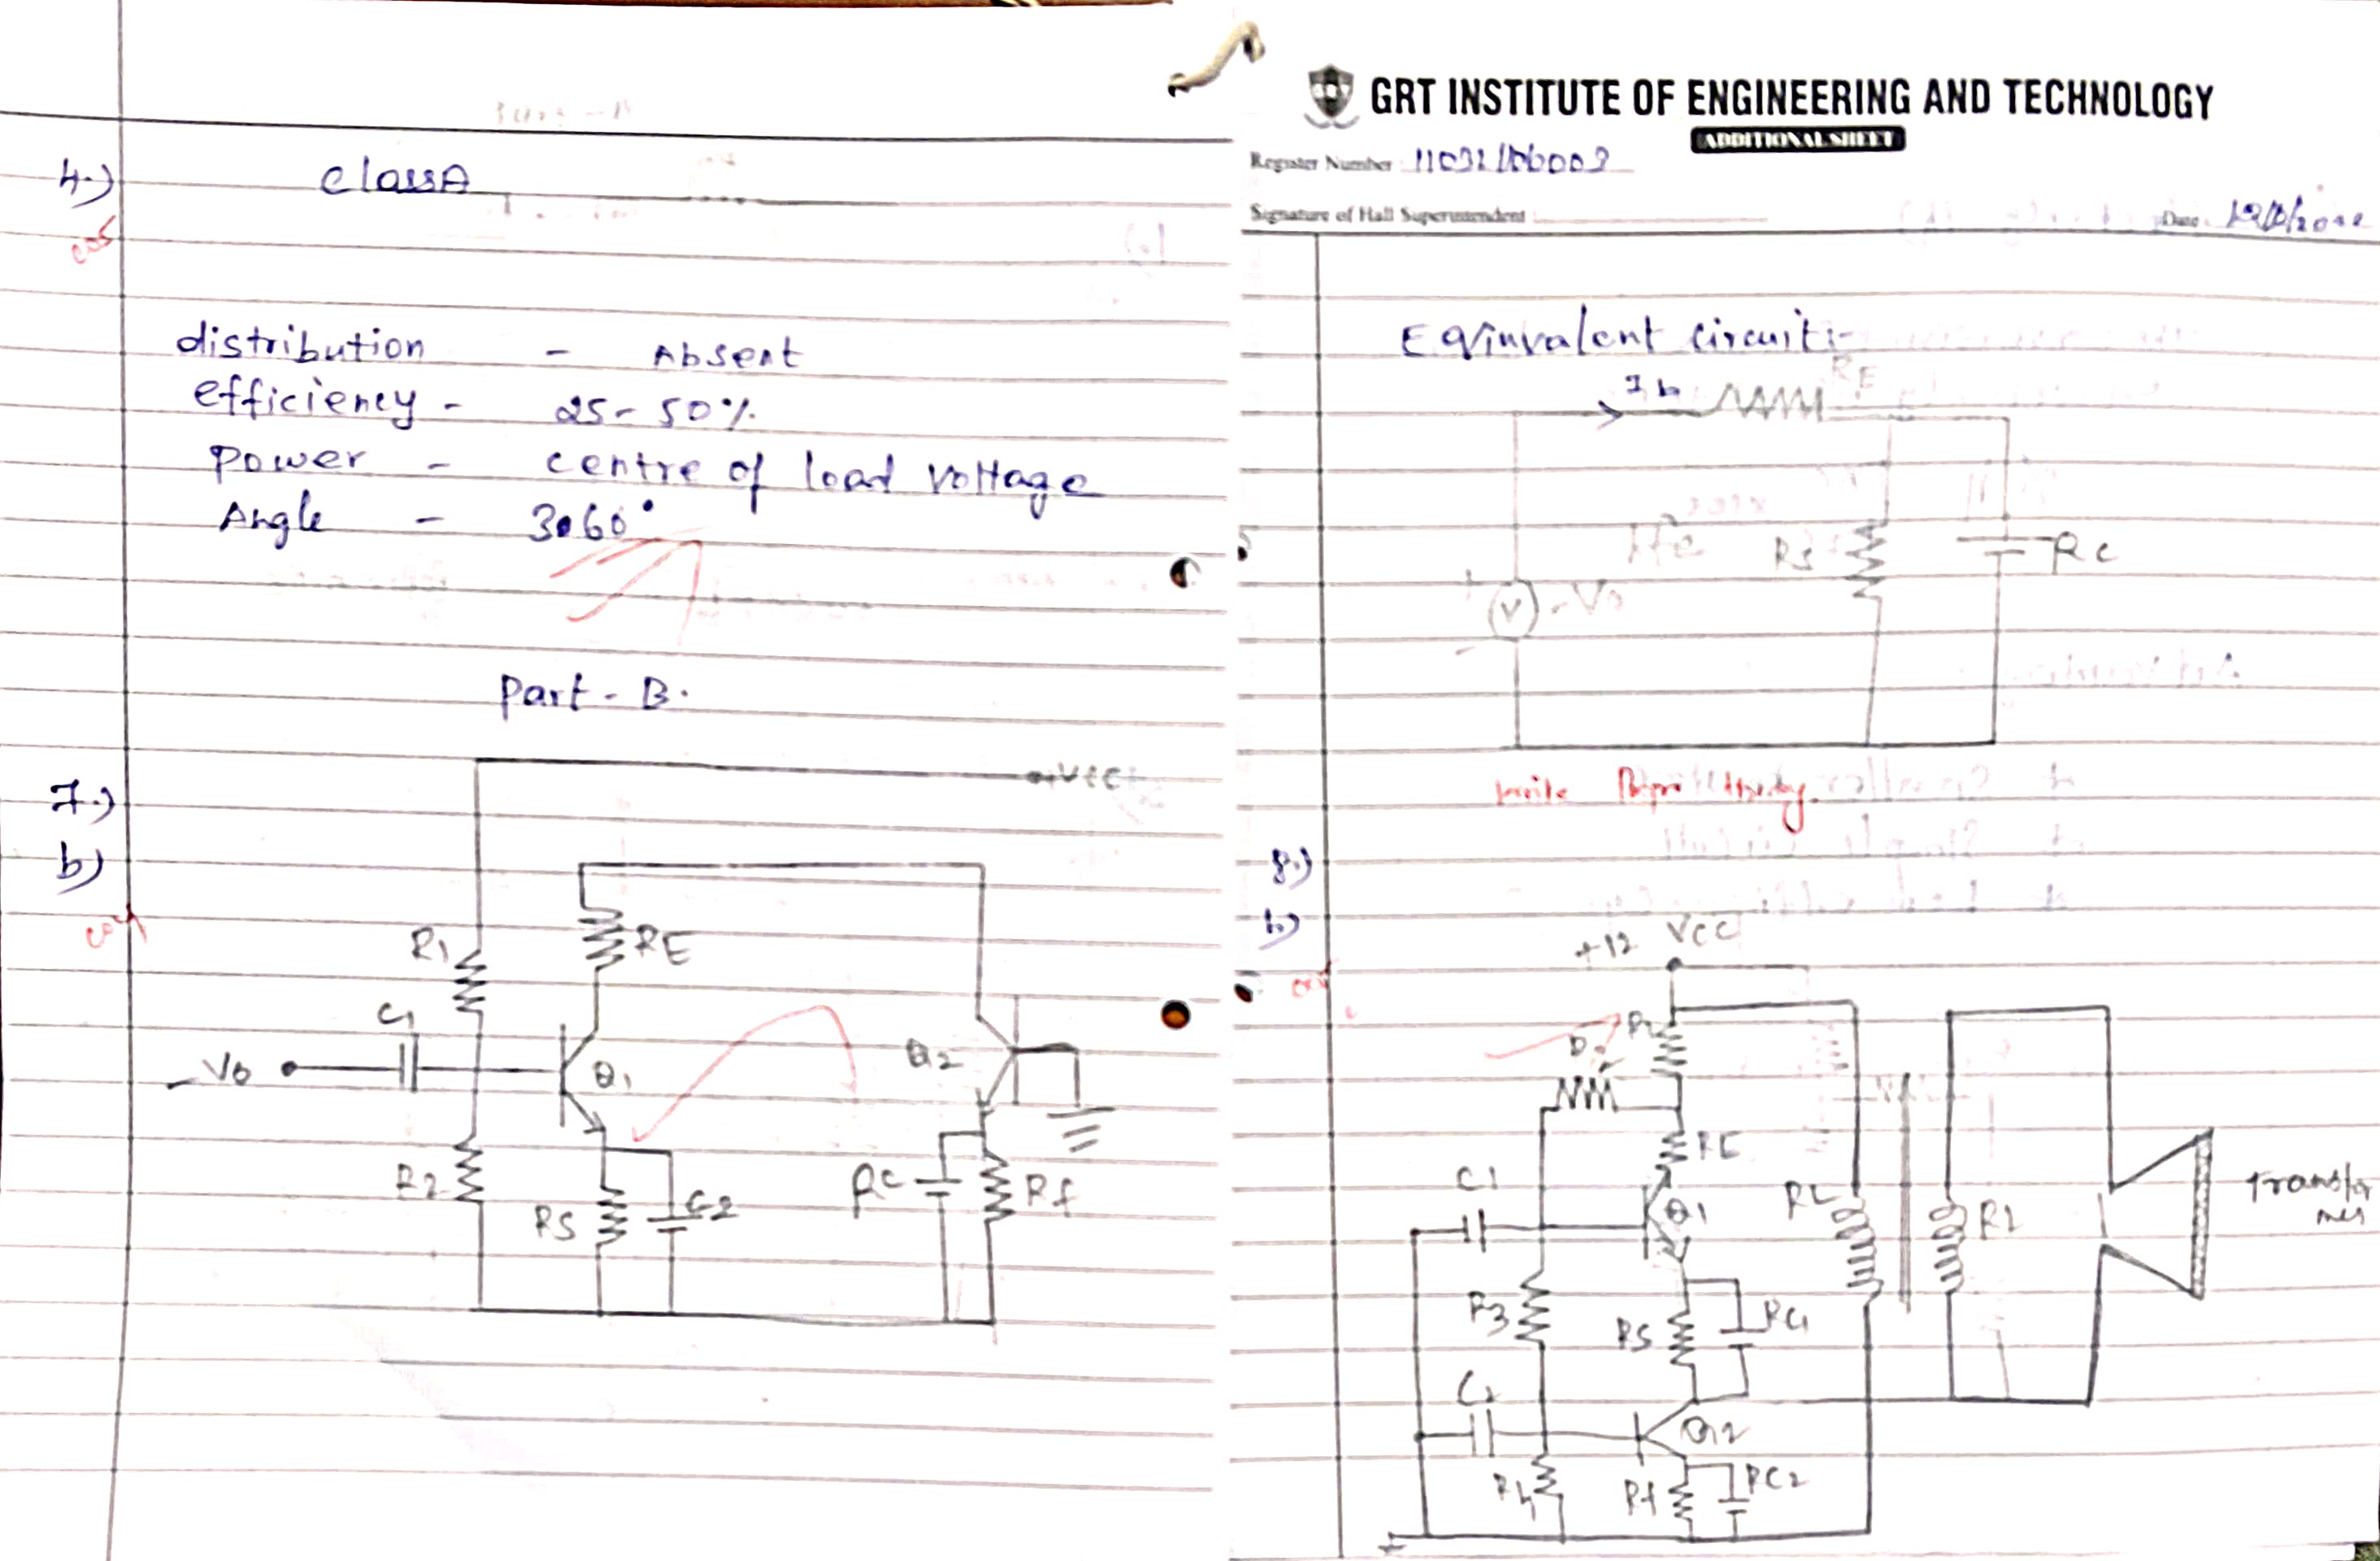 4.)
class A
distribution - Absent
efficiency - 25-50%
Power - centre of load voltage
Angle - 3060°
Part-B.
7.)
b)
+VCC
R1
RE
C1
Vo
Q1
Q2
R2
RS
C2
RC
Rf
GRT INSTITUTE OF ENGINEERING AND TECHNOLOGY
ADDITIONAL SHEET
Register Number
Signature of Hall Superintendent
Date
Eqinvalent circuit:-
Ib
RE
hfe
Rs
RC
+
V
-
write
8.)
b)
+12 VCC
RE
C1
Q1
RL
RL
Transfor
mer
R3
RS
RC1
C2
Q2
R4
Rf
RC2